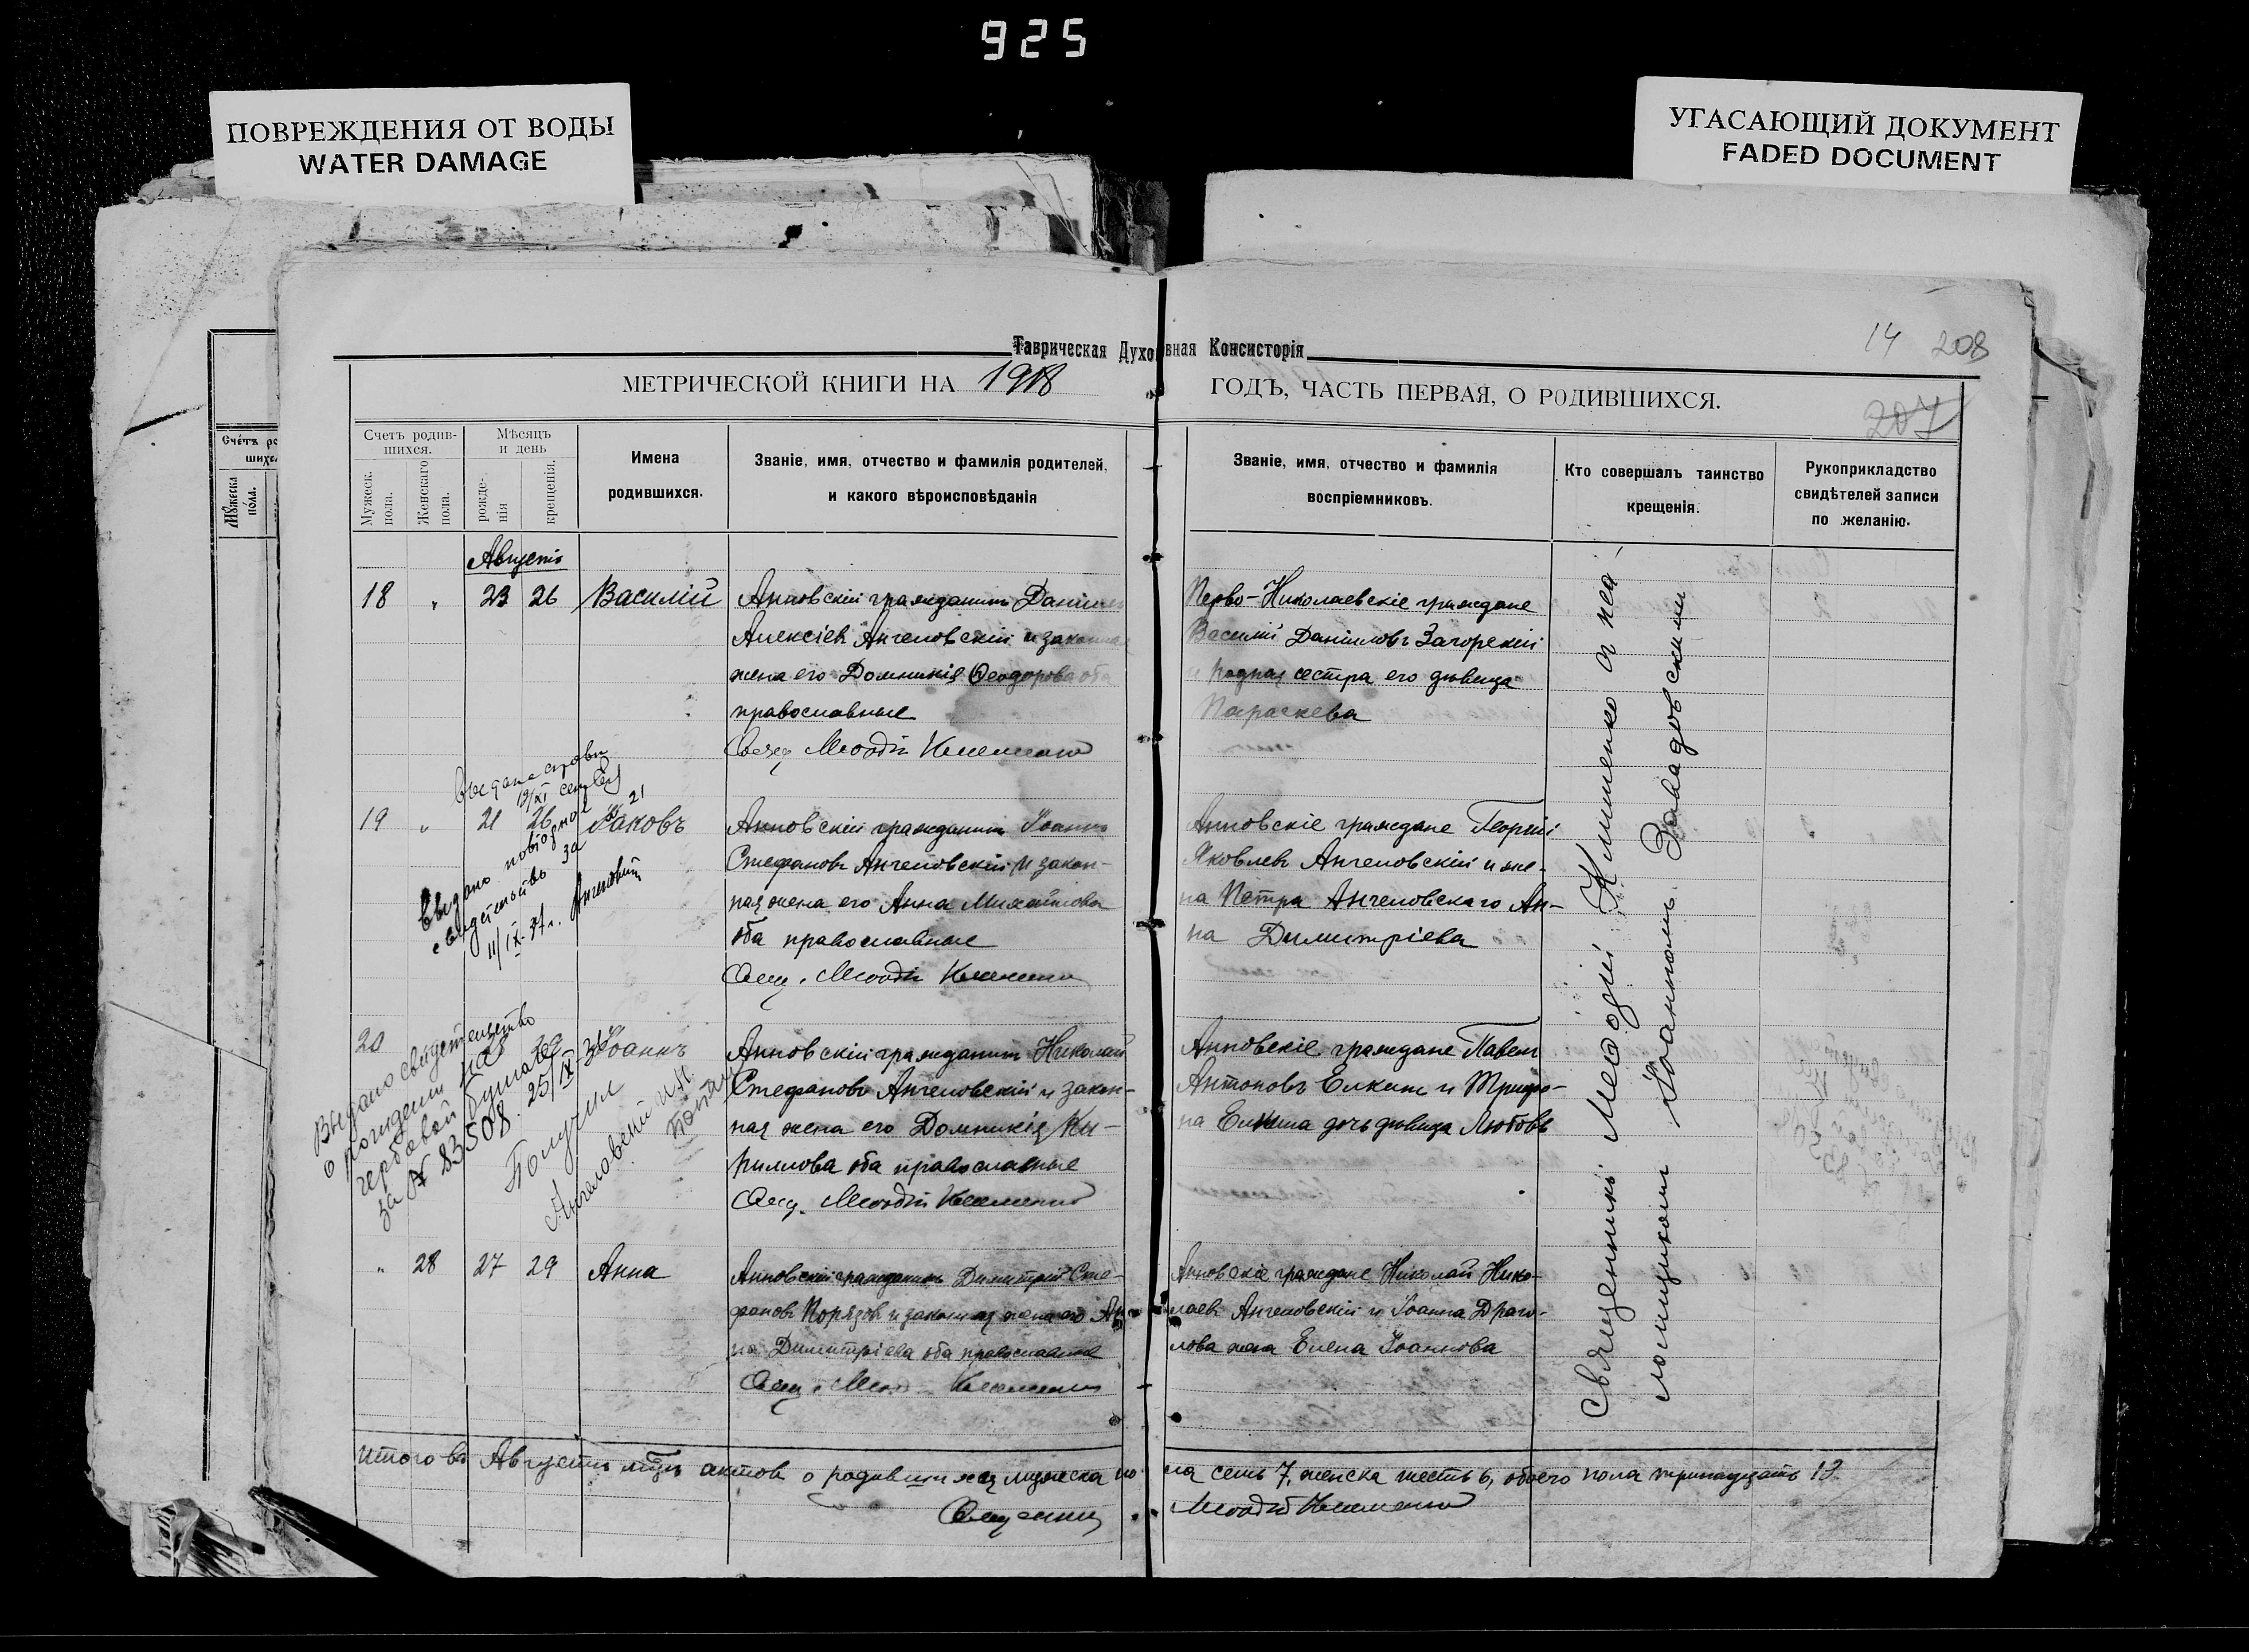 925
ПОВРЕЖДЕНИЯ ОТ ВОДЫ
WATER DAMAGE
УГАСАЮЩИЙ ДОКУМЕНТ
FADED DOCUMENT
Таврическая Духовная Консисторія
14 208
МЕТРИЧЕСКОЙ КНИГИ НА 1918 ГОДЪ, ЧАСТЬ ПЕРВАЯ, О РОДИВШИХСЯ.
207
Счетъ родив-
шихся.
Мужеск. пола.
Женскаго пола.
Мѣсяцъ
и день
рожде-
нія
крещенія.
Имена
родившихся.
Званіе, имя, отчество и фамилія родителей,
и какого вѣроисповѣданія
Званіе, имя, отчество и фамилія
воспріемниковъ.
Кто совершалъ таинство
крещенія.
Рукоприкладство
свидѣтелей записи
по желанію.
Августъ
18 " 23 26 Василій
Анновскій гражданинъ Даніилъ
Алексіевъ Ангеловскій и законная
жена его Домникія Ѳеодорова оба
православные
Свящ. Меѳодій Клименко
Перво-Николаевскіе граждане
Василій Даніиловъ Загорскій
и родная сестра его дѣвица
Параскева
19 " 21 26 Іаковъ
Анновскій гражданинъ Іоаннъ
Стефановъ Ангеловскій и закон-
ная жена его Анна Михайлова
оба православные
Свящ. Меѳодій Клименко
Анновскіе граждане Георгій
Яковлевъ Ангеловскій и же-
на Петра Ангеловскаго Ан-
на Димитріева
Видано повідно
свидетельство за
11/IX-37г.
20 Іоаннъ
Анновскій гражданинъ Николай
Стефановъ Ангеловскій и закон-
ная жена его Домникія Ки-
риллова оба православные
Свящ. Меѳодій Клименко
Анновскіе граждане Павелъ
Антоновъ Елкинъ и Трифо-
на Елкина дочь дѣвица Любовь
Выдано свидетельство
о рождении на
гербовой бумаге
за № 83508. 25/IX-36
Получил
Ангеловский
" 28 27 29 Анна
Анновскій гражданинъ Димитрій Сте-
фановъ Порязовъ и законная жена его Ан-
на Димитріева оба православные
Свящ. Меѳодій Клименко
Анновскіе граждане Николай Нико-
лаевъ Ангеловскій и Іоанна Драго-
лова жена Елена Іоаннова
Священникъ Меѳодій Клименко съ пса-
ломщикомъ Іоанномъ Завадовскимъ
Итого въ Августѣ мцѣ актовъ о родившихся мужеска по-ла семь 7, женска шесть 6, обоего пола тринадцать 13.
Священникъ Меѳодій Клименко